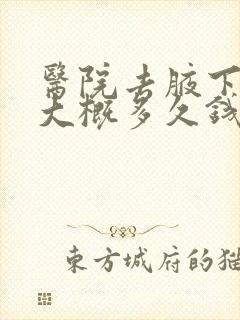 醫院去腋下
大概多久錢
東方城府的猫